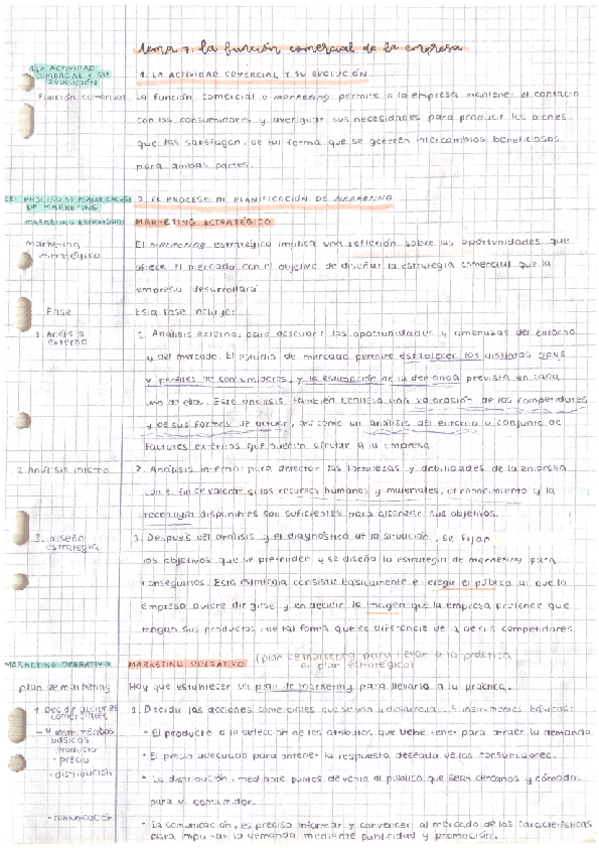 Tema 7: la función comercial de la empresa
1. LA ACTIVIDAD COMERCIAL Y SU EVOLUCIÓN
1. LA ACTIVIDAD COMERCIAL Y SU EVOLUCIÓN
Función comercial
La función comercial o marketing permite a la empresa mantener el contacto
con los consumidores y averiguar sus necesidades para producir los bienes
que las satisfagan, de tal forma que se generen intercambios beneficiosos
para ambas partes.
PROCESO DE PLANIFICACIÓN DE MARKETING
2. EL PROCESO DE PLANIFICACIÓN DE MARKETING
MARKETING ESTRATÉGICO
MARKETING ESTRATÉGICO
marketing estratégico
El marketing estratégico implica una reflexión sobre las oportunidades que
ofrece el mercado con el objetivo de diseñar la estrategia comercial que la
empresa desarrollará
Fase
Esta fase incluye:
1. Análisis externo
1. Análisis externo, para descubrir las oportunidades y amenazas del entorno
y del mercado. El estudio de mercado permite establecer los distintos tipos
y perfiles de consumidores, y la estimación de la demanda prevista en cada
uno de ellos. Este análisis también conlleva una valoración de los competidores
y de sus formas de actuar, así como un análisis del entorno o conjunto de
factores externos que pueden afectar a la empresa
2. Análisis interno
2. Análisis interno: para detectar las fortalezas y debilidades de la empresa
con el fin de valorar si los recursos humanos y materiales, el conocimiento y la
tecnología disponibles son suficientes para alcanzar sus objetivos.
3. diseño estrategia
3. Después del análisis y el diagnóstico de la situación, se fijan
los objetivos que se pretenden y se diseña la estrategia de marketing para
conseguirlos. Esta estrategia consiste básicamente en elegir el público al que la
empresa quiere dirigirse y en decidir la imagen que la empresa pretende que
tengan sus productos, de tal forma que se diferencie de la de sus competidores.
MARKETING OPERATIVO
MARKETING OPERATIVO (plan de marketing para llevar a la práctica
el plan estratégico)
plan de marketing
Hay que establecer un plan de marketing para llevarlo a la práctica.
acciones comerciales
1. Decidir las acciones comerciales que se van a desarrollar instrumentos básicos:
→ 4 instrumentos básicos
producto
• El producto o la selección de los atributos que debe tener para atraer la demanda.
- precio
• El precio adecuado para obtener la respuesta deseada de los consumidores.
- distribución
• La distribución, mediante puntos de venta al público que sean cercanos y cómodos
para el consumidor.
- comunicación
• La comunicación, es preciso informar y convencer al mercado de las características
para impulsar la demanda mediante publicidad y promoción.